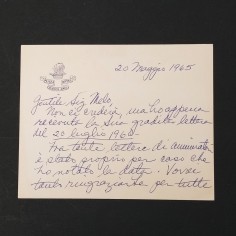 20 Maggio 1965
Gentile Sig. Melo,
Non ci crederà, ma ho appena
ricevuto la Sua gradita lettera
del 20 luglio 1960
Fra tante lettere di ammiratori
è stato proprio per caso che
ho notato la data. Vorrei
tanto ringraziarla per tutte